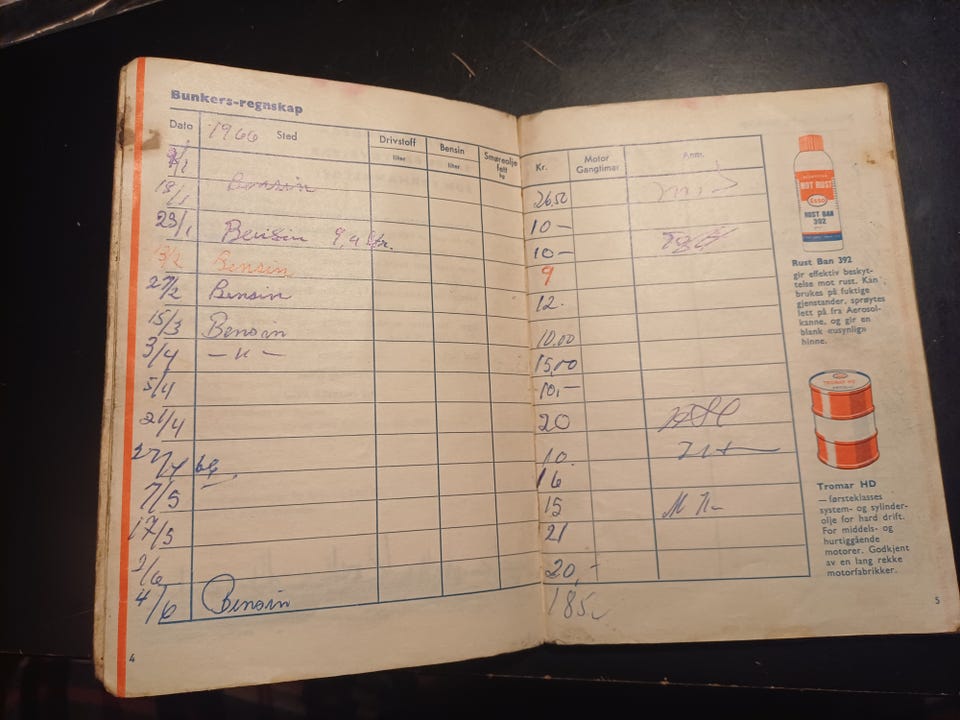 Bunkers-regnskap
Dato 1966 Sted Drivstoff liter Bensin liter Smøreolje fett kg
/1 Bensin
18/1
23/1 Bensin 9,9 ltr.
13/2 Bensin
27/2 Bensin
15/3 Bensin
3/4 — " —
5/4
21/4
27/4
7/5
17/5
2/6
4/6 Bensin
4
Kr. Motor Ganglimer Anm.
26,50
10 —
10 —
9
12.
10,00
15,00
10,—
20
10.
16
15
21
20,—
185,
NOT RUST
Esso
RUST BAN
392
Rust Ban 392
gir effektiv beskyt-
telse mot rust. Kan
brukes på fuktige
gjenstander, sprøytes
lett på fra Aerosol-
kanne, og gir en
blank «usynlig»
hinne.
TROMAR HD
Tromar HD
— førsteklasses
system- og sylinder-
olje for hard drift.
For middels- og
hurtiggående
motorer. Godkjent
av en lang rekke
motorfabrikker.
5